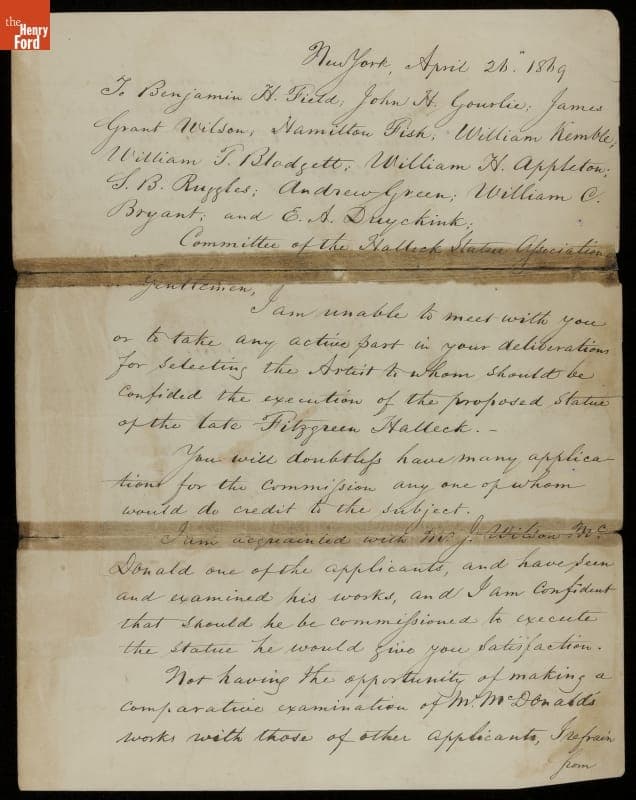 the
Henry
Ford
New York, April 26" 1869
To Benjamin H. Field; John H. Gourlie; James
Grant Wilson; Hamilton Fish; William Kemble;
William T. Blodgett; William H. Appleton;
S. B. Ruggles; Andrew Green; William C.
Bryant; and E. A. Duychink;
Committee of the Halleck Statue Association
Gentlemen,
I am unable to meet with you
or to take any active part in your deliberations
for selecting the Artist to whom should be
confided the execution of the proposed statue
of the late Fitzgreen Halleck. –
You will doubtless have many applica-
tions for the commission any one of whom
would do credit to the subject.
I am acquainted with Mr. J. Wilson Mc.
Donald one of the applicants, and have seen
and examined his works, and I am Confident
that should he be commissioned to execute
the statue he would give you satisfaction.
Not having the opportunity of making a
comparative examination of Mr. McDonald's
works with those of other applicants, I refrain
from